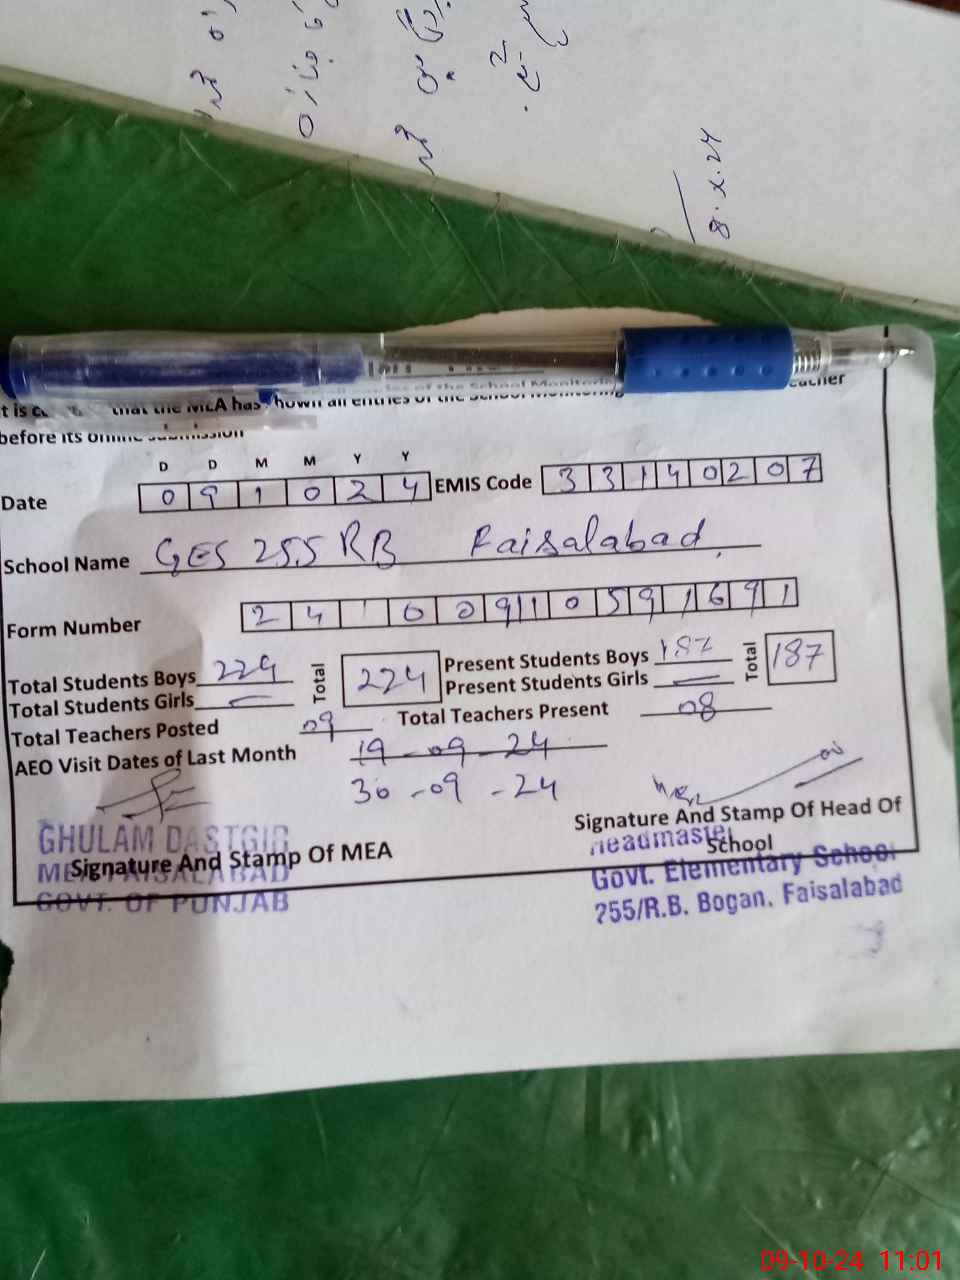 8.x.24
before its online submission
D D M M Y Y
Date 0 9 1 0 2 4 EMIS Code 3 3 1 4 0 2 0 7
School Name GES 255 RB Faisalabad
Form Number 2 4 1 0 0 9 1 0 5 9 1 6 9 1
Total Students Boys 224 Total 224 Present Students Boys 187 Total 187
Total Students Girls — Present Students Girls —
Total Teachers Posted 09 Total Teachers Present 08
AEO Visit Dates of Last Month 19-09-24
30-09-24
Signature And Stamp Of Head Of
School
Signature And Stamp Of MEA
GHULAM DASTGIR
MEA FAISALABAD
GOVT. OF PUNJAB
Headmaster
Govt. Elementary School
255/R.B. Bogan, Faisalabad
09-10-24 11:01